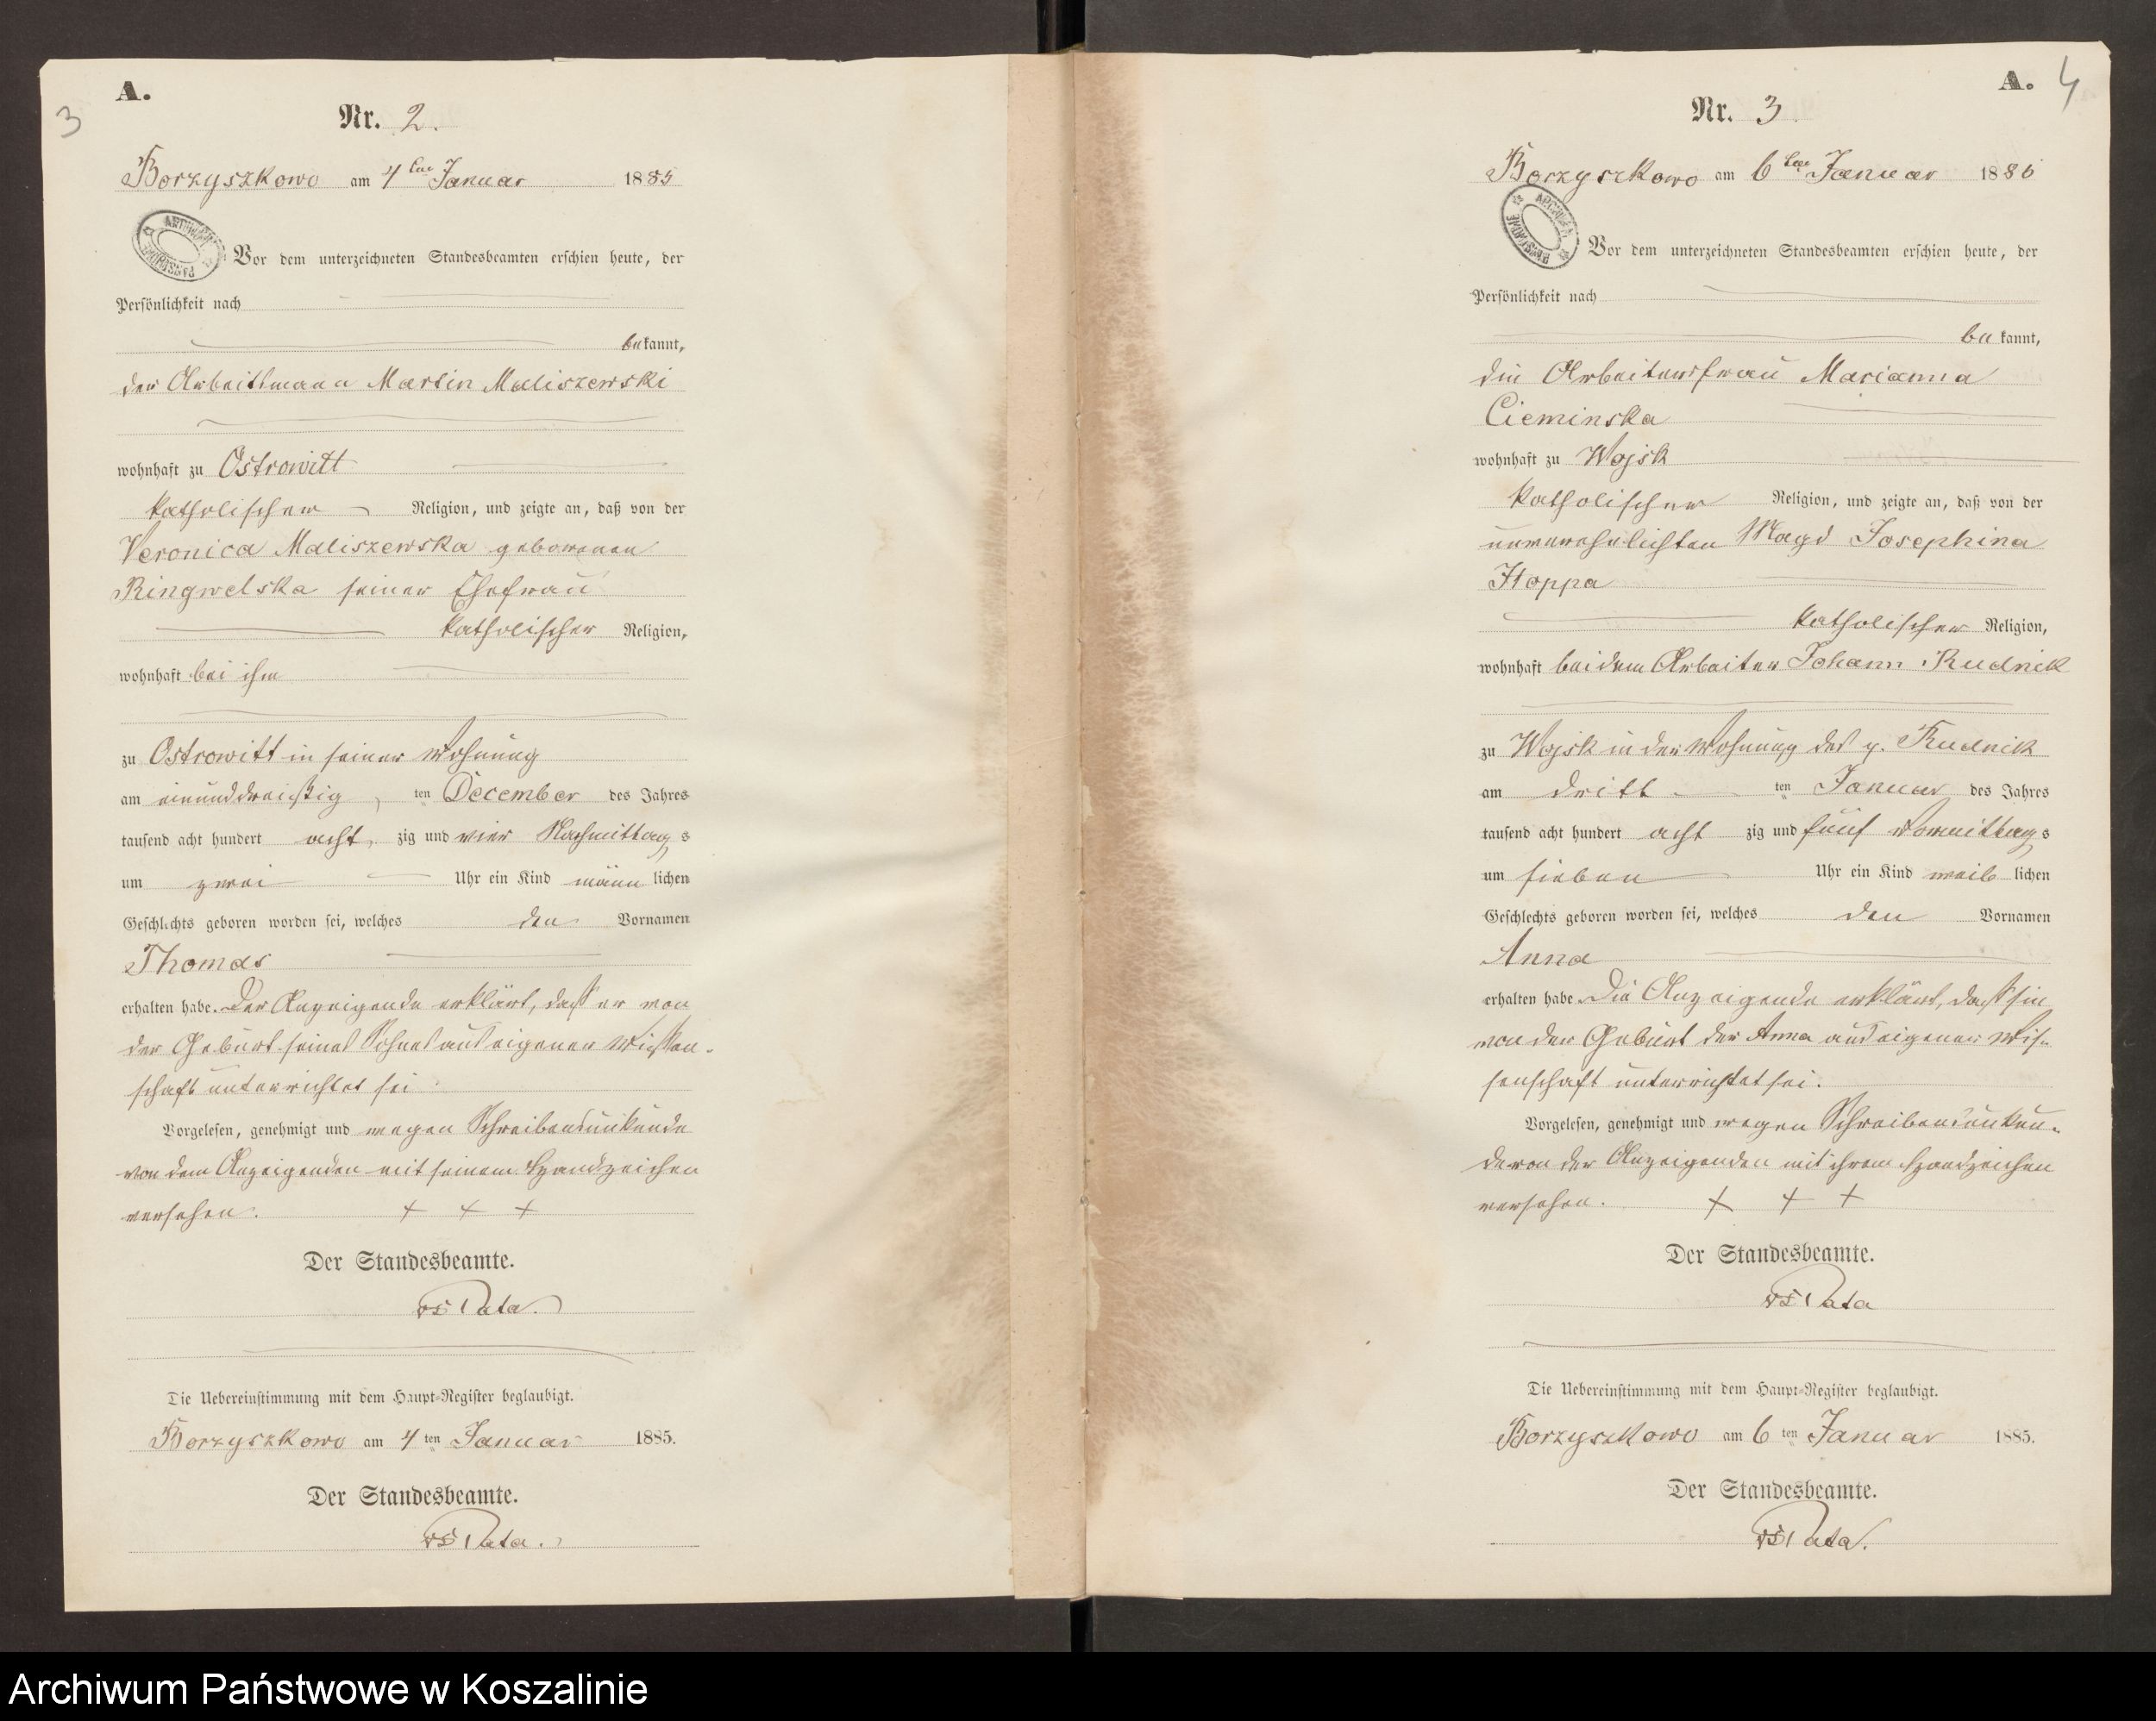 A.
3
Nr. 2.
Borzyszkowo am 4ten Januar 1885
Vor dem unterzeichneten Standesbeamten erschien heute, der
Persönlichkeit nach
bekannt,
der Arbeitsmann Martin Maliszewski
wohnhaft zu Ostrowitt
katholischer Religion, und zeigte an, daß von der
Veronica Maliszewska geborenen
Ringwelska seiner Ehefrau
katholischer Religion,
wohnhaft bei ihm
zu Ostrowitt in seiner Wohnung
am einunddreißig ten December des Jahres
tausend acht hundert acht zig und vier Nachmittags
um zwei Uhr ein Kind männlichen
Geschlechts geboren worden sei, welches den Vornamen
Thomas
erhalten habe. Der Anzeigende erklärt, daß er von
der Geburt seines Sohnes aus eigener Wissen-
schaft unterrichtet sei.
Vorgelesen, genehmigt und wegen Schreibensunkunde
von dem Anzeigenden mit seinem Handzeichen
versehen. + + +
Der Standesbeamte.
Die Uebereinstimmung mit dem Haupt-Register beglaubigt.
Borzyszkowo am 4 ten Januar 1885.
Der Standesbeamte.
A.
4
Nr. 3.
Borzyszkowo am 6ten Januar 1885
Vor dem unterzeichneten Standesbeamten erschien heute, der
Persönlichkeit nach
bekannt,
die Arbeiterfrau Marianna
Cieminska
wohnhaft zu Wojsk
katholischer Religion, und zeigte an, daß von der
unverehelichten Magd Josephina
Hoppa
katholischer Religion,
wohnhaft bei dem Arbeiter Johann Rudnick
zu Wojsk in der Wohnung des p. Rudnik
am dritt ten Januar des Jahres
tausend acht hundert acht zig und fünf Vormittags
um sieben Uhr ein Kind weiblichen
Geschlechts geboren worden sei, welches den Vornamen
Anna
erhalten habe. Die Anzeigende erklärt, daß sie
von der Geburt der Anna aus eigener Wis-
senschaft unterrichtet sei.
Vorgelesen, genehmigt und wegen Schreibensunkun-
de von der Anzeigenden mit ihrem Handzeichen
versehen. + + +
Der Standesbeamte.
Die Uebereinstimmung mit dem Haupt-Register beglaubigt.
Borzyszkowo am 6 ten Januar 1885.
Der Standesbeamte.
Archiwum Państwowe w Koszalinie